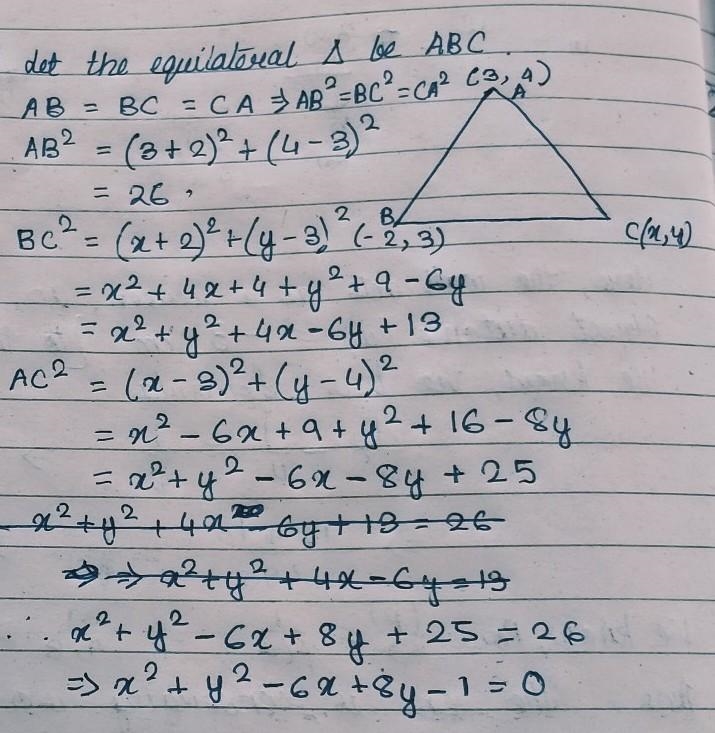 Let the equilateral Δ be ABC.
AB = BC = CA ⇒ AB² = BC² = CA²
(3, 4)
A
AB² = (3+2)² + (4-3)²
= 26,
B
(-2, 3)
C(x,y)
BC² = (x+2)² + (y-3)²
= x² + 4x + 4 + y² + 9 - 6y
= x² + y² + 4x - 6y + 13
AC² = (x-3)² + (y-4)²
= x² - 6x + 9 + y² + 16 - 8y
= x² + y² - 6x - 8y + 25
x² + y² + 4x - 6y + 13 = 26
⇒ ⇒ x² + y² + 4x - 6y = 13
∴ x² + y² - 6x + 8y + 25 = 26
⇒ x² + y² - 6x + 8y - 1 = 0